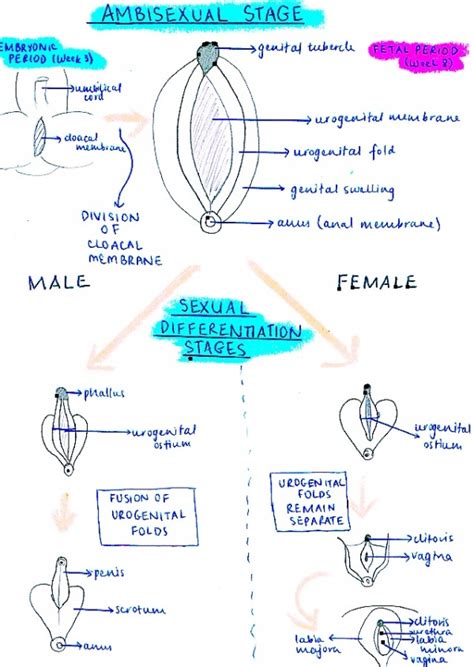 AMBISEXUAL STAGE
EMBRYONIC
PERIOD (Week 3)
FETAL PERIOD
(Week 8)
genital tubercle
umbilical
cord
cloacal
membrane
urogenital membrane
urogenital fold
genital swelling
anus (anal membrane)
DIVISION
OF
CLOACAL
MEMBRANE
MALE
FEMALE
SEXUAL
DIFFERENTIATION
STAGES
phallus
urogenital
ostium
urogenital
ostium
FUSION OF
UROGENITAL
FOLDS
UROGENITAL
FOLDS
REMAIN
SEPARATE
clitoris
vagina
penis
scrotum
anus
clitoris
urethra
labia
minora
vagina
labia
majora